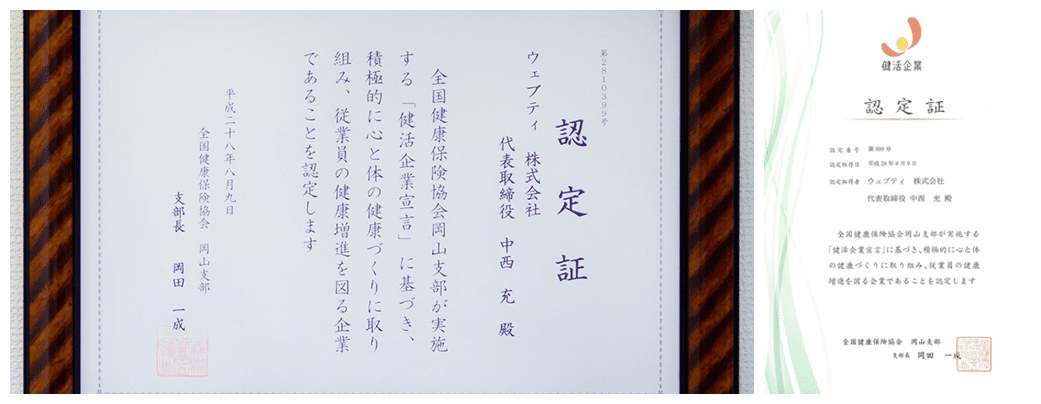 認定証
第2810399号
ウェブティ 株式会社
代表取締役 中西 充 殿
全国健康保険協会岡山支部が実施
する「健活企業宣言」に基づき、
積極的に心と体の健康づくりに取り
組み、従業員の健康増進を図る企業
であることを認定します
平成二十八年八月九日
全国健康保険協会 岡山支部
支部長 岡田 一成
健活企業
認定証
認定番号 第399号
認定取得日 平成28年8月9日
認定取得者 ウェブティ 株式会社
代表取締役 中西 充 殿
全国健康保険協会岡山支部が実施する
「健活企業宣言」に基づき、積極的に心と体
の健康づくりに取り組み、従業員の健康
増進を図る企業であることを認定します
全国健康保険協会 岡山支部
支部長 岡田 一成